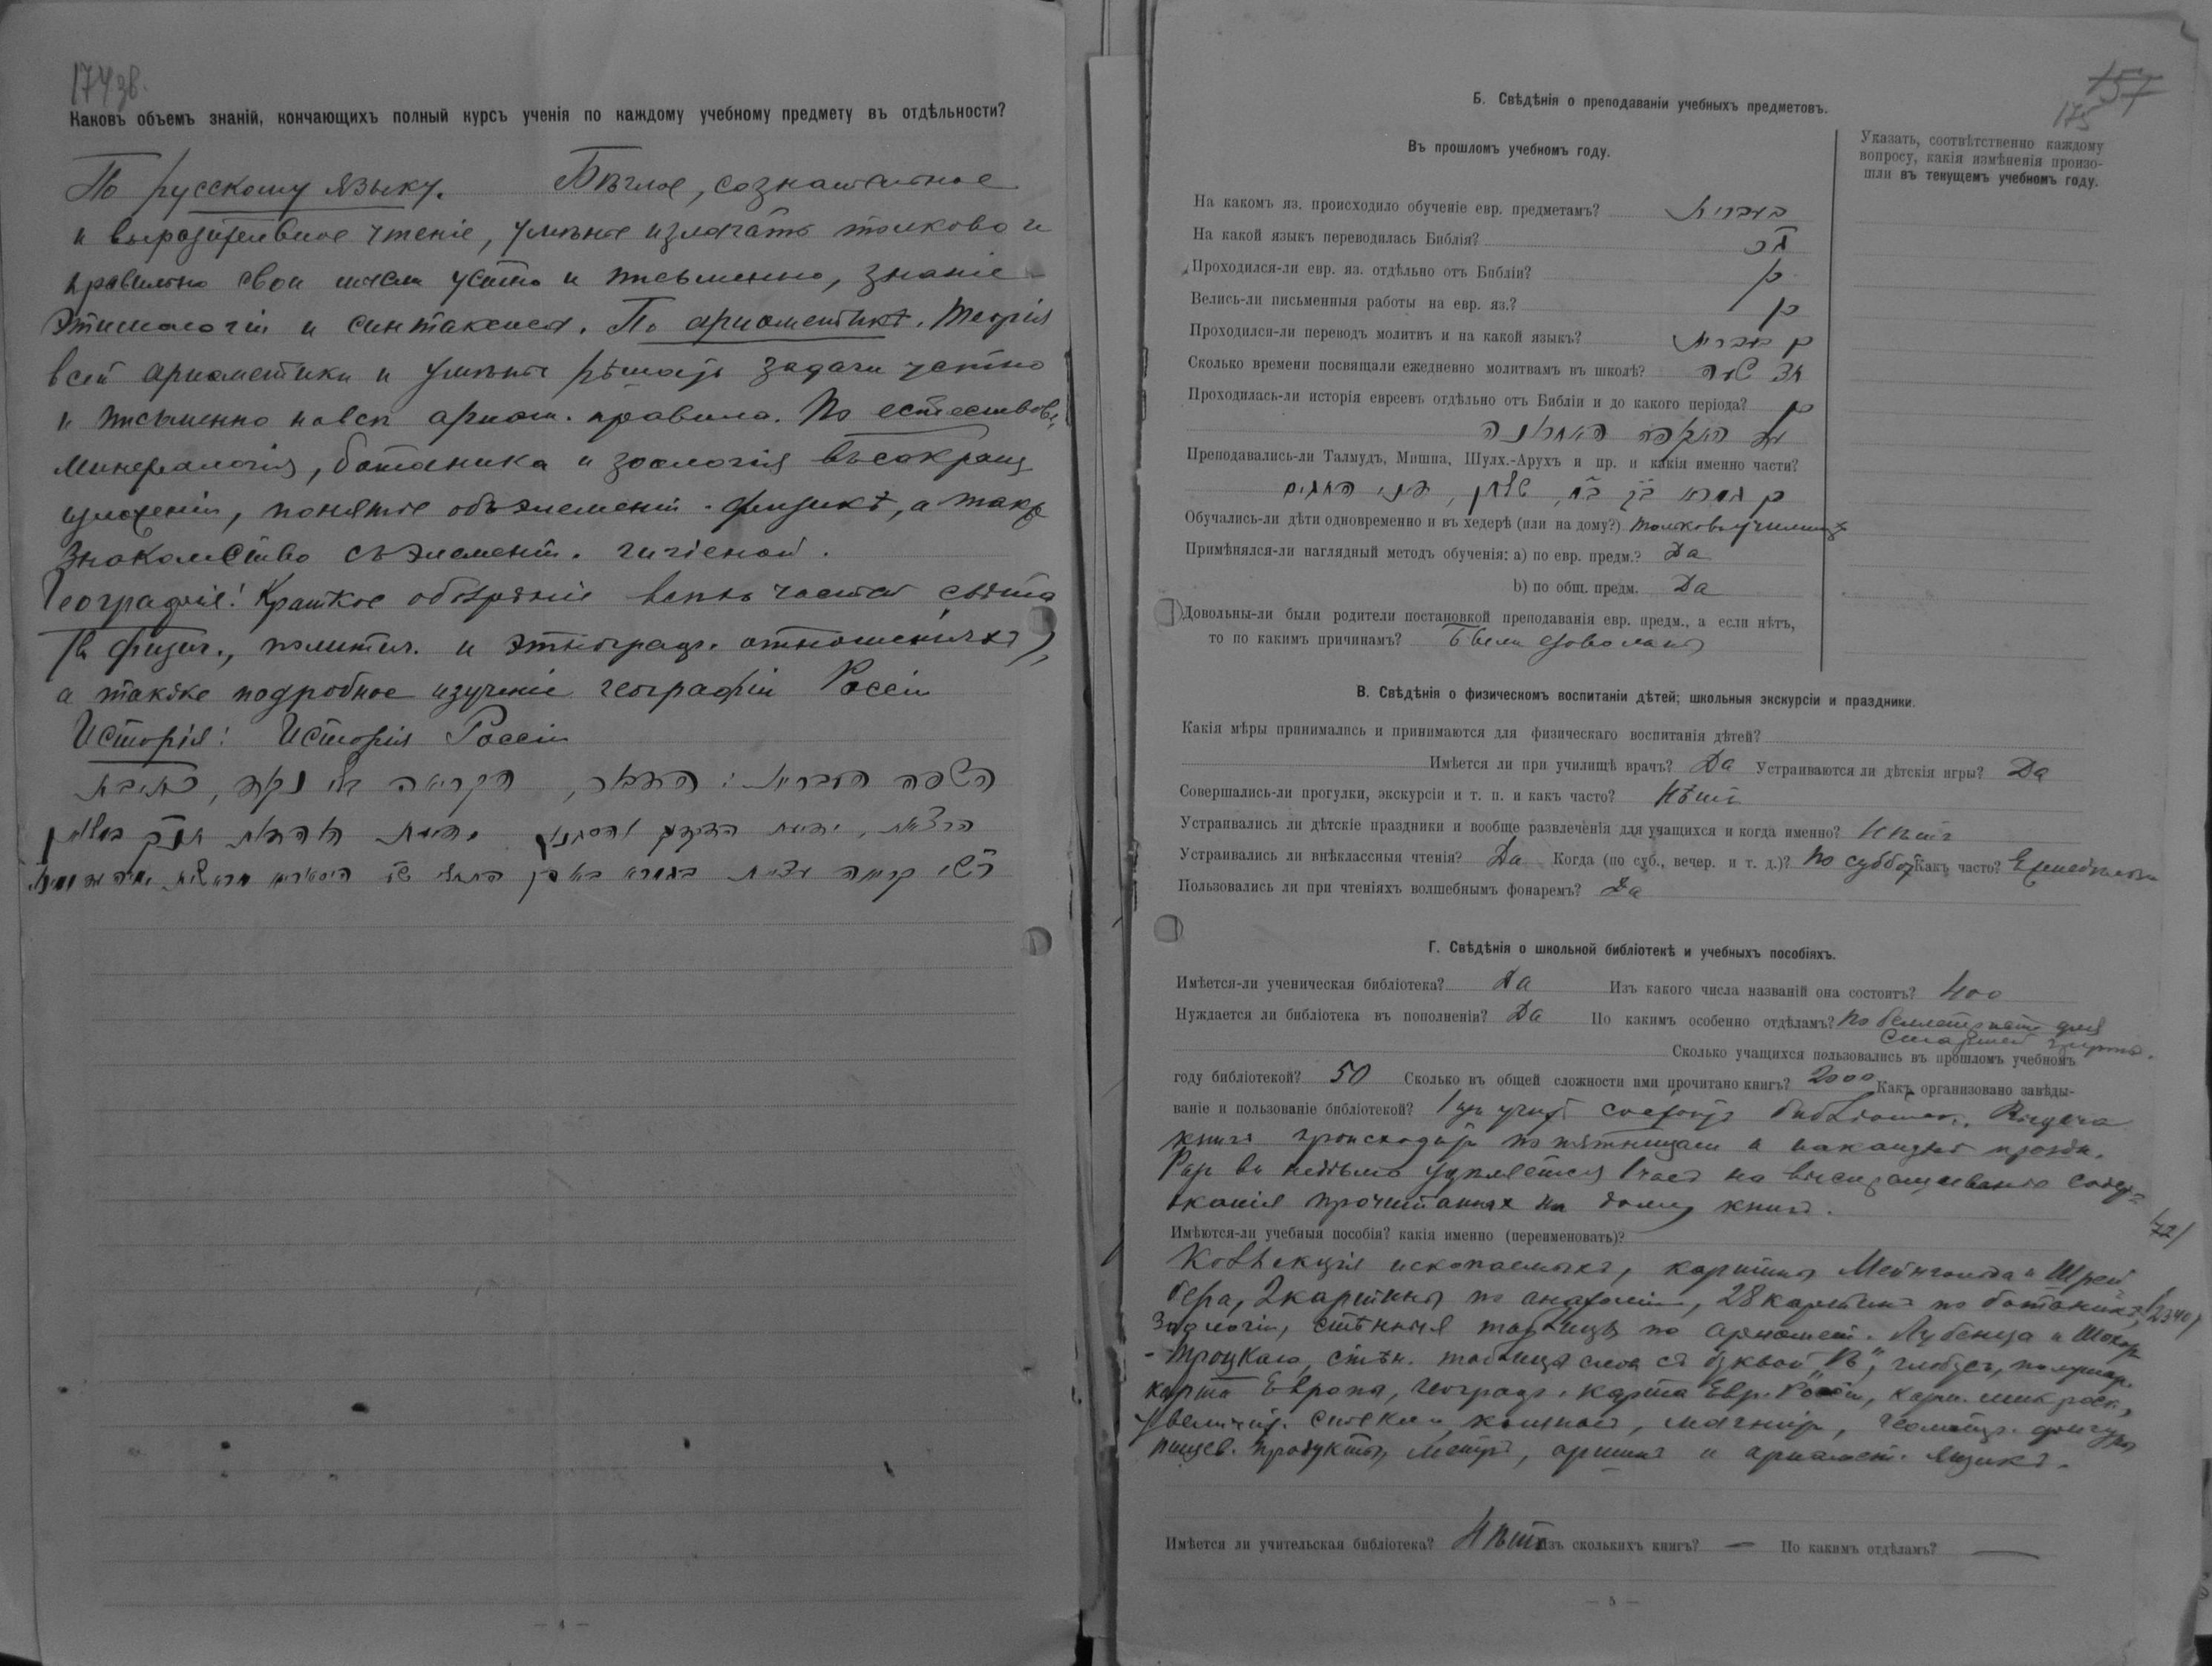 174 зв.
Каковъ объемъ знаній, кончающихъ полный курсъ ученія по каждому учебному предмету въ отдѣльности?
По русскому языку. Бѣглое, сознательное
и выразительное чтеніе, умѣніе излагать толково и
правильно свои мысли устно и письменно, знаніе
этимологіи и синтаксиса. По ариѳметикѣ. Теорія
всей ариѳметики и умѣніе рѣшать задачи устно
и письменно на всѣ ариѳм. правила. По естествов.
Минералогія, ботаника и зоологія въ сокращ.
изложеніи, понятіе объ элемент. физикѣ, а также
знакомство съ элемент. гигіеной.
Географія: Краткое обозрѣніе всѣхъ частей свѣта
(въ физич., политич. и этнограф. отношеніяхъ),
а также подробное изученіе географіи Россіи
Исторія: Исторія Россіи
השפה העברית: הדבור, הקריאה בלי נקוד, כתיבת
— 4 —
157
175
Б. Свѣдѣнія о преподаваніи учебныхъ предметовъ.
Въ прошломъ учебномъ году.
Указать, соотвѣтственно каждому
вопросу, какія измѣненія произо-
шли въ текущемъ учебномъ году.
На какомъ яз. происходило обученіе евр. предметамъ? בעברית
На какой языкъ переводилась Библія?
Проходился-ли евр. яз. отдѣльно отъ Библіи? כן
Велись-ли письменныя работы на евр. яз.? כן
Проходился-ли переводъ молитвъ и на какой языкъ? כן עברית
Сколько времени посвящали ежедневно молитвамъ въ школѣ? חצי שעה
Проходилась-ли исторія евреевъ отдѣльно отъ Библіи и до какого періода? כן
עד התקופה האחרונה
Преподавались-ли Талмудъ, Мишна, Шулх.-Арухъ и пр. и какія именно части?
כן גמרא
Обучались-ли дѣти одновременно и въ хедерѣ (или на дому?) только въ училищѣ
Примѣнялся-ли наглядный методъ обученія: а) по евр. предм.? Да
b) по общ. предм. Да
Довольны-ли были родители постановкой преподаванія евр. предм., а если нѣтъ,
то по какимъ причинамъ? Были довольны
В. Свѣдѣнія о физическомъ воспитаніи дѣтей; школьныя экскурсіи и праздники.
Какія мѣры принимались и принимаются для физическаго воспитанія дѣтей?
Имѣется ли при училищѣ врачъ? Да Устраиваются ли дѣтскія игры? Да
Совершались-ли прогулки, экскурсіи и т. п. и какъ часто? Нѣтъ
Устраивались ли дѣтскіе праздники и вообще развлеченія для учащихся и когда именно? Нѣтъ
Устраивались ли внѣклассныя чтенія? Да Когда (по суб., вечер. и т. д.)? По суббот. Какъ часто? Еженедѣльно
Пользовались ли при чтеніяхъ волшебнымъ фонаремъ? Да
Г. Свѣдѣнія о школьной библіотекѣ и учебныхъ пособіяхъ.
Имѣется-ли ученическая библіотека? Да Изъ какого числа названій она состоитъ? 400
Нуждается ли библіотека въ пополненіи? Да По какимъ особенно отдѣламъ? По беллетристикѣ для
старшей группы.
Сколько учащихся пользовались въ прошломъ учебномъ
году библіотекой? 50 Сколько въ общей сложности ими прочитано книгъ? 2000 Какъ организовано завѣды-
ваніе и пользованіе библіотекой? 1 изъ учит. состоитъ библіотек. Выдача
книгъ происходитъ по пятницамъ и наканунѣ праздн.
Разъ въ недѣлю удѣляется 1 часъ на выспрашиваніе содер-
жанія прочитанныхъ на дому книгъ.
Имѣются-ли учебныя пособія? какія именно (переименовать)?
Коллекція ископаемыхъ, картины Мейнгольда и Шрей-
бера, 2 картины по анатоміи, 28 картинъ по ботаникѣ,
зоологіи, стѣнныя таблицы по ариѳмет. Лубенца и Шохоръ
-Троцкаго, стѣн. таблица словъ съ буквой „ѣ“, глобусъ, полушар.
карта Европы, географ. карта Евр. Россіи,
увеличит. стекло, компасъ, магнитъ, геометр. фигуры
пищев. продукты, метръ, аршинъ и ариѳмет. ящикъ.
Имѣется ли учительская библіотека? Нѣтъ Изъ сколькихъ книгъ? — По какимъ отдѣламъ? —
— 5 —